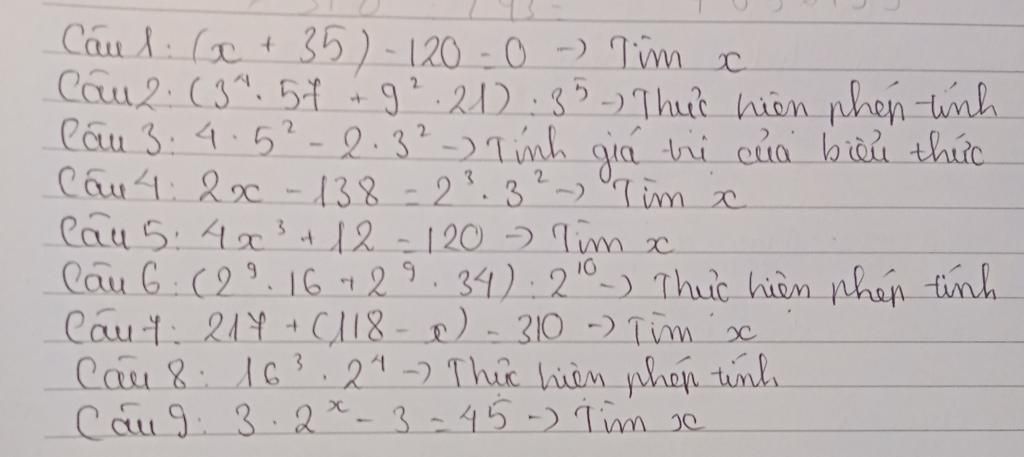 Câu 1: (x + 35) - 120 = 0 -> Tìm x
Câu 2: (3⁴ . 57 + 9² . 21) : 3⁵ -> Thực hiện phép tính
Câu 3: 4 . 5² - 2 . 3² -> Tính giá trị của biểu thức
Câu 4: 2x - 138 = 2³ . 3² -> Tìm x
Câu 5: 4x³ + 12 = 120 -> Tìm x
Câu 6: (2⁹ . 16 + 2⁹ . 34) : 2¹⁰ -> Thực hiện phép tính
Câu 7: 217 + (118 - x) = 310 -> Tìm x
Câu 8: 16³ . 2⁴ -> Thực hiện phép tính
Câu 9: 3 . 2ˣ - 3 = 45 -> Tìm x